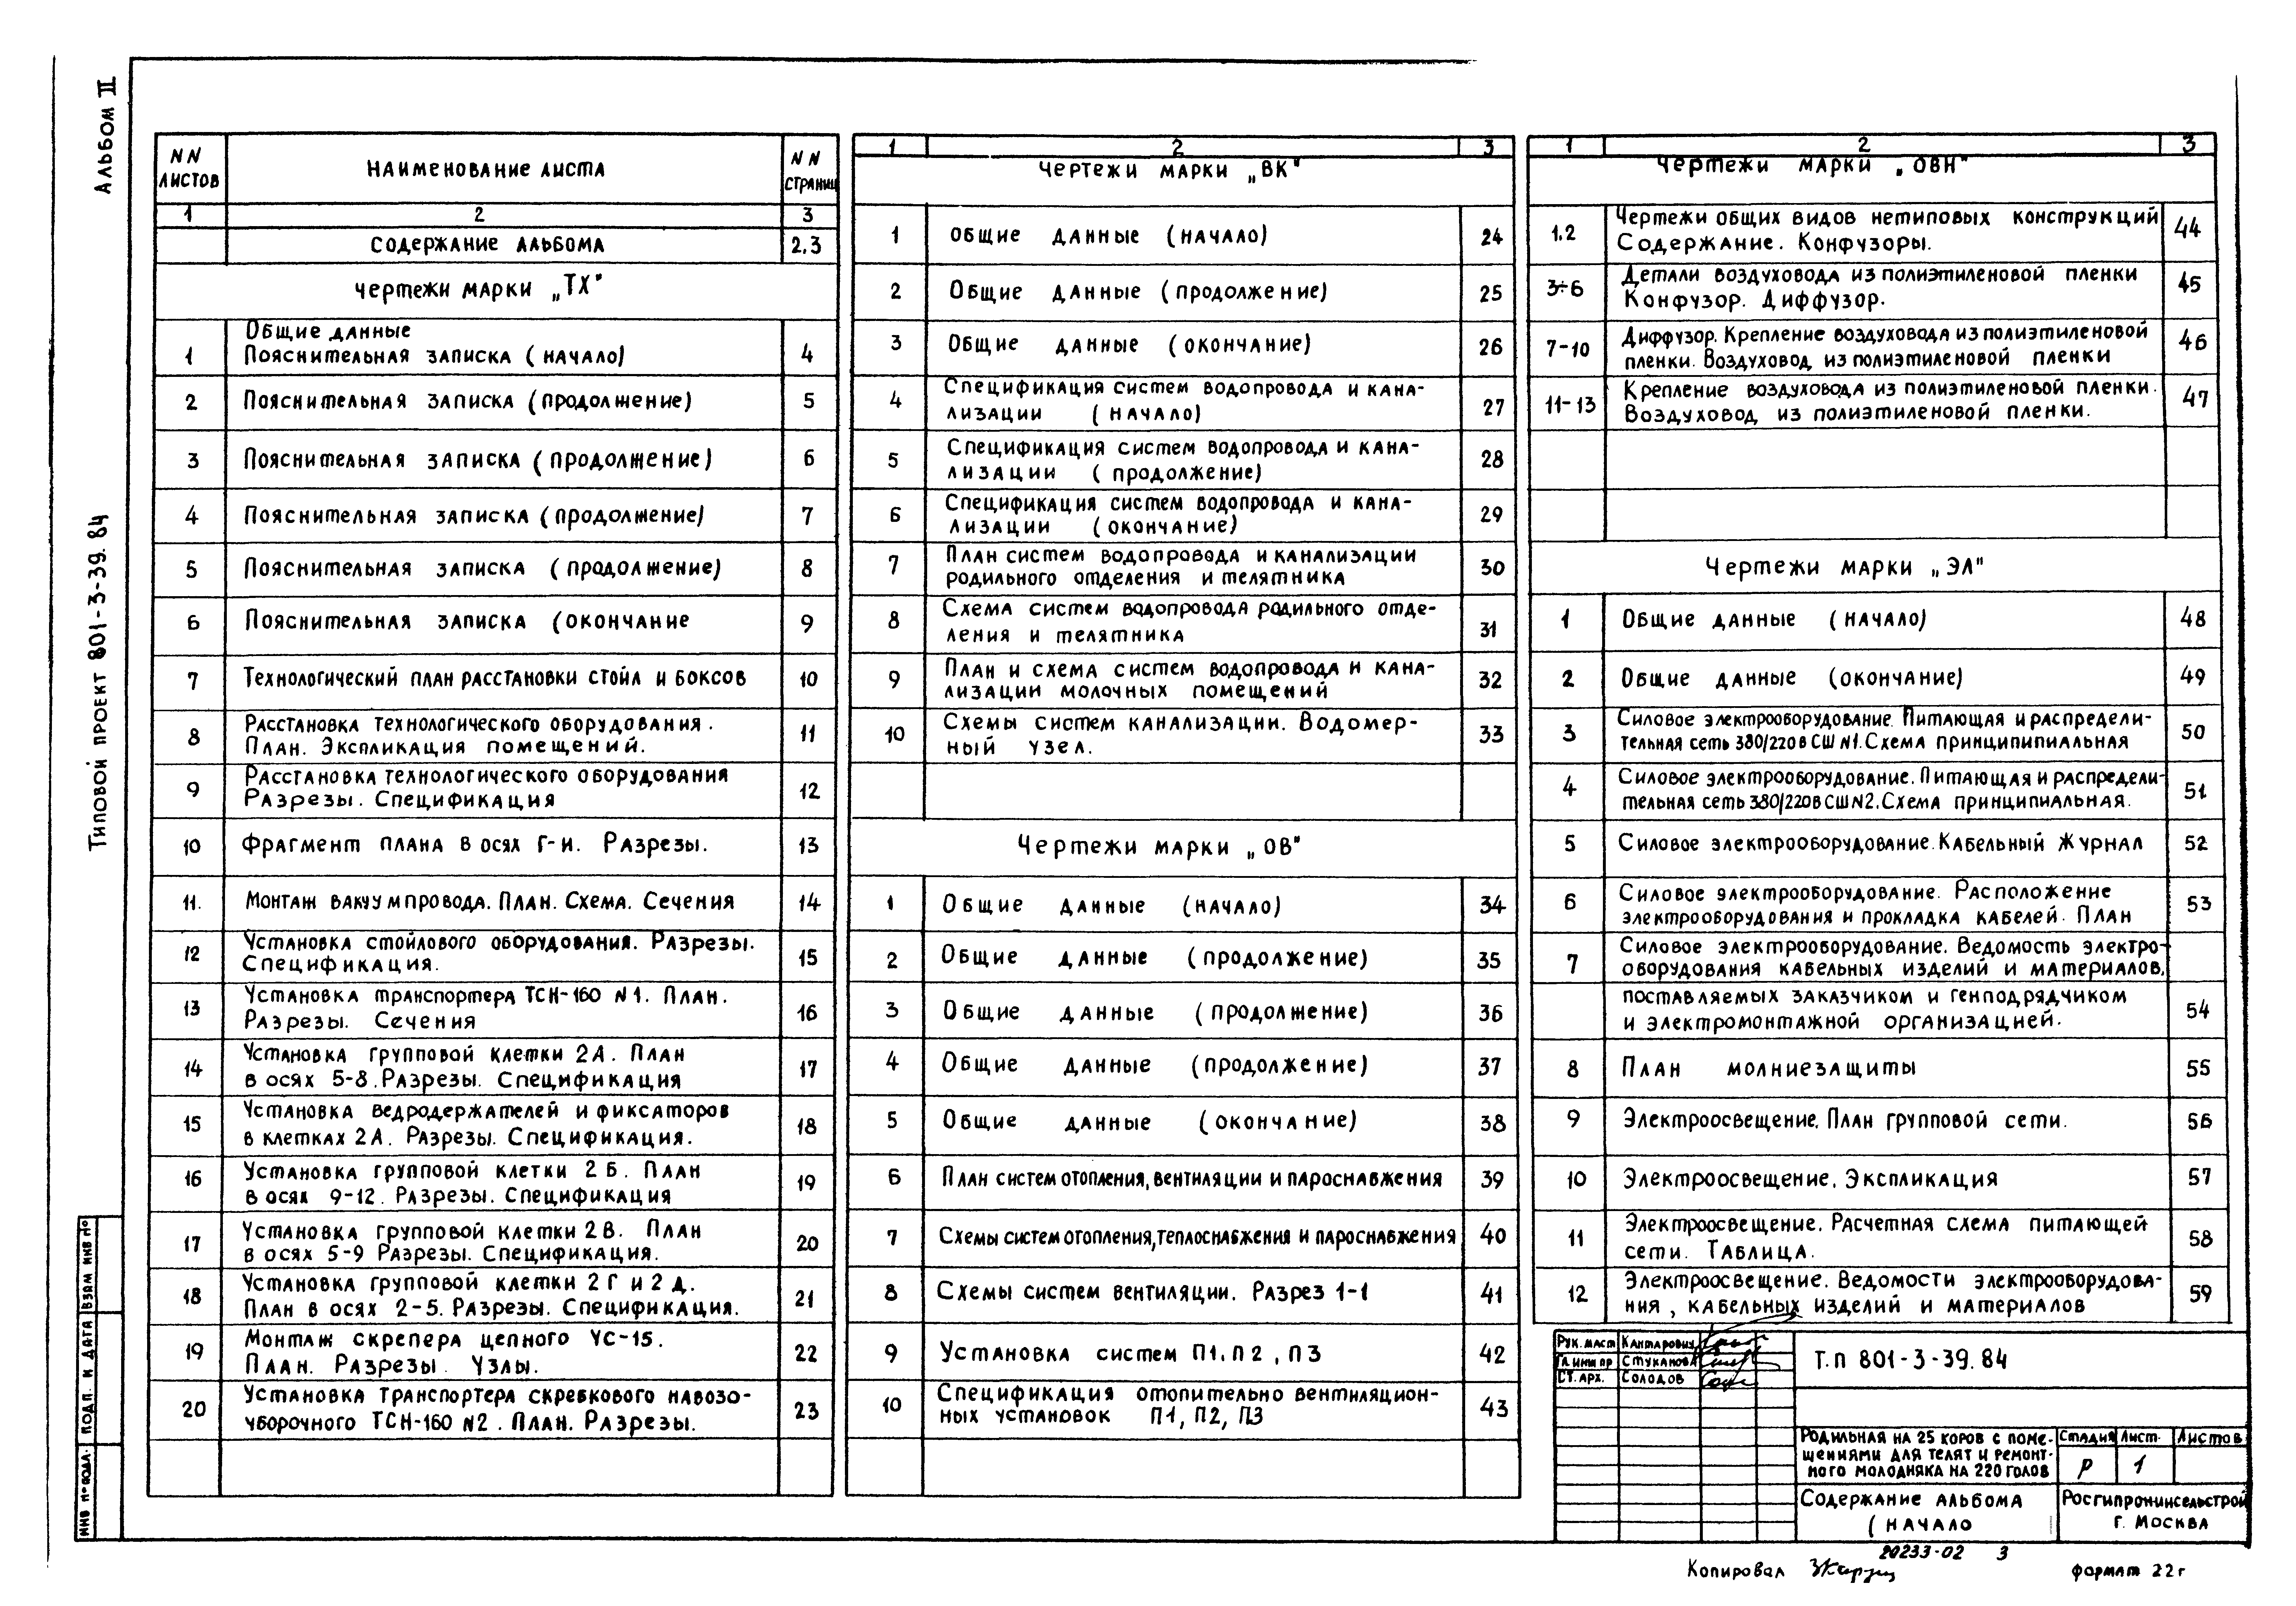 Альбом II
Типовой проект 801-3-39.84
ИНВ № подл. Подп. и дата Взам инв №
NN листов Наименование листа NN страниц
1 2 3
Содержание альбома 2.3
Чертежи марки „ТХ"
Общие данные
1 Пояснительная записка (начало) 4
2 Пояснительная записка (продолжение) 5
3 Пояснительная записка (продолжение) 6
4 Пояснительная записка (продолжение) 7
5 Пояснительная записка (продолжение) 8
6 Пояснительная записка (окончание 9
7 Технологический план расстановки стойл и боксов 10
Расстановка технологического оборудования.
8 План. Экспликация помещений. 11
Расстановка технологического оборудования
9 Разрезы. Спецификация 12
10 Фрагмент плана в осях Г-И. Разрезы. 13
11. Монтаж вакуумпровода. План. Схема. Сечения 14
12 Установка стойлового оборудования. Разрезы.
Спецификация. 15
13 Установка транспортера ТСН-160 N1. План.
Разрезы. Сечения 16
14 Установка групповой клетки 2А. План
в осях 5-8. Разрезы. Спецификация 17
15 Установка ведродержателей и фиксаторов
в клетках 2А. Разрезы. Спецификация. 18
16 Установка групповой клетки 2Б. План
в осях 9-12. Разрезы. Спецификация 19
17 Установка групповой клетки 2В. План
в осях 5-9 Разрезы. Спецификация. 20
18 Установка групповой клетки 2Г и 2Д.
План в осях 2-5. Разрезы. Спецификация. 21
19 Монтаж скрепера цепного УС-15.
План. Разрезы. Узлы. 22
20 Установка транспортера скребкового навозо-
уборочного ТСН-160 N2. План. Разрезы. 23
1 2 3
Чертежи марки „ВК"
1 Общие данные (начало) 24
2 Общие данные (продолжение) 25
3 Общие данные (окончание) 26
4 Спецификация систем водопровода и кана-
лизации (начало) 27
5 Спецификация систем водопровода и кана-
лизации (продолжение) 28
6 Спецификация систем водопровода и кана-
лизации (окончание) 29
7 План систем водопровода и канализации
родильного отделения и телятника 30
8 Схема систем водопровода родильного отде-
ления и телятника 31
9 План и схема систем водопровода и кана-
лизации молочных помещений 32
10 Схемы систем канализации. Водомер-
ный узел. 33
Чертежи марки „ОВ"
1 Общие данные (начало) 34
2 Общие данные (продолжение) 35
3 Общие данные (продолжение) 36
4 Общие данные (продолжение) 37
5 Общие данные (окончание) 38
6 План систем отопления, вентиляции и пароснабжения 39
7 Схемы систем отопления, теплоснабжения и пароснабжения 40
8 Схемы систем вентиляции. Разрез 1-1 41
9 Установка систем П1, П2, П3 42
10 Спецификация отопительно вентиляцион-
ных установок П1, П2, П3 43
1 2 3
Чертежи марки „ОВН"
1.2 Чертежи общих видов нетиповых конструкций
Содержание. Конфузоры. 44
3÷6 Детали воздуховода из полиэтиленовой пленки
Конфузор. Диффузор. 45
7-10 Диффузор. Крепление воздуховода из полиэтиленовой
пленки. Воздуховод из полиэтиленовой пленки 46
11-13 Крепление воздуховода из полиэтиленовой пленки.
Воздуховод из полиэтиленовой пленки. 47
Чертежи марки „ЭЛ"
1 Общие данные (начало) 48
2 Общие данные (окончание) 49
3 Силовое электрооборудование. Питающая и распредели-
тельная сеть 380/220в СШ N1. Схема принципипиальная 50
4 Силовое электрооборудование. Питающая и распредели-
тельная сеть 380/220в СШ N2. Схема принципиальная. 51
5 Силовое электрооборудование. Кабельный журнал 52
6 Силовое электрооборудование. Расположение
электрооборудования и прокладка кабелей. План 53
7 Силовое электрооборудование. Ведомость электро-
оборудования кабельных изделий и материалов,
поставляемых заказчиком и генподрядчиком
и электромонтажной организацией. 54
8 План молниезащиты 55
9 Электроосвещение. План групповой сети. 56
10 Электроосвещение. Экспликация 57
11 Электроосвещение. Расчетная схема питающей
сети. Таблица. 58
12 Электроосвещение. Ведомости электрооборудова-
ния, кабельных изделий и материалов 59
Рук. маст Кантарович
Гл. инж пр Стуканова
Ст. арх. Солодов
Т.п 801-3-39.84
Родильная на 25 коров с поме-
щениями для телят и ремонт-
ного молодняка на 220 голов
Стадия Лист Листов
Р 1
Содержание альбома
(начало
Росгипрониисельстрой
г. Москва
20233-02 3
Копировал
формат 22г